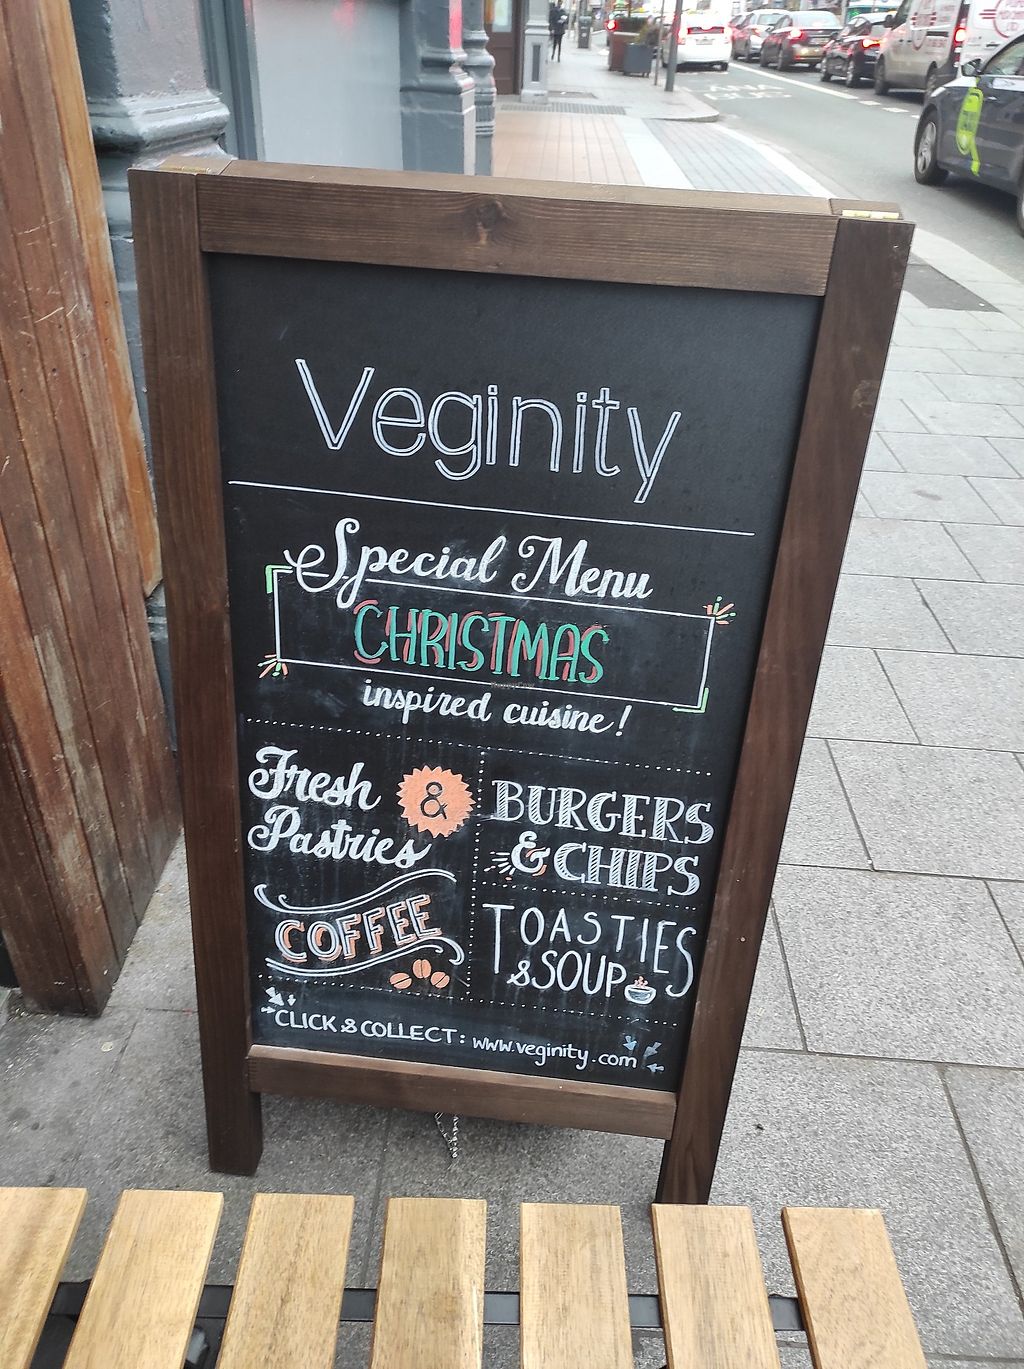 Veginity
Special Menu
CHRISTMAS
inspired cuisine!
Fresh &
Pastries
COFFEE
BURGERS
& CHIPS
TOASTIES
& SOUP
CLICK & COLLECT: www.veginity.com